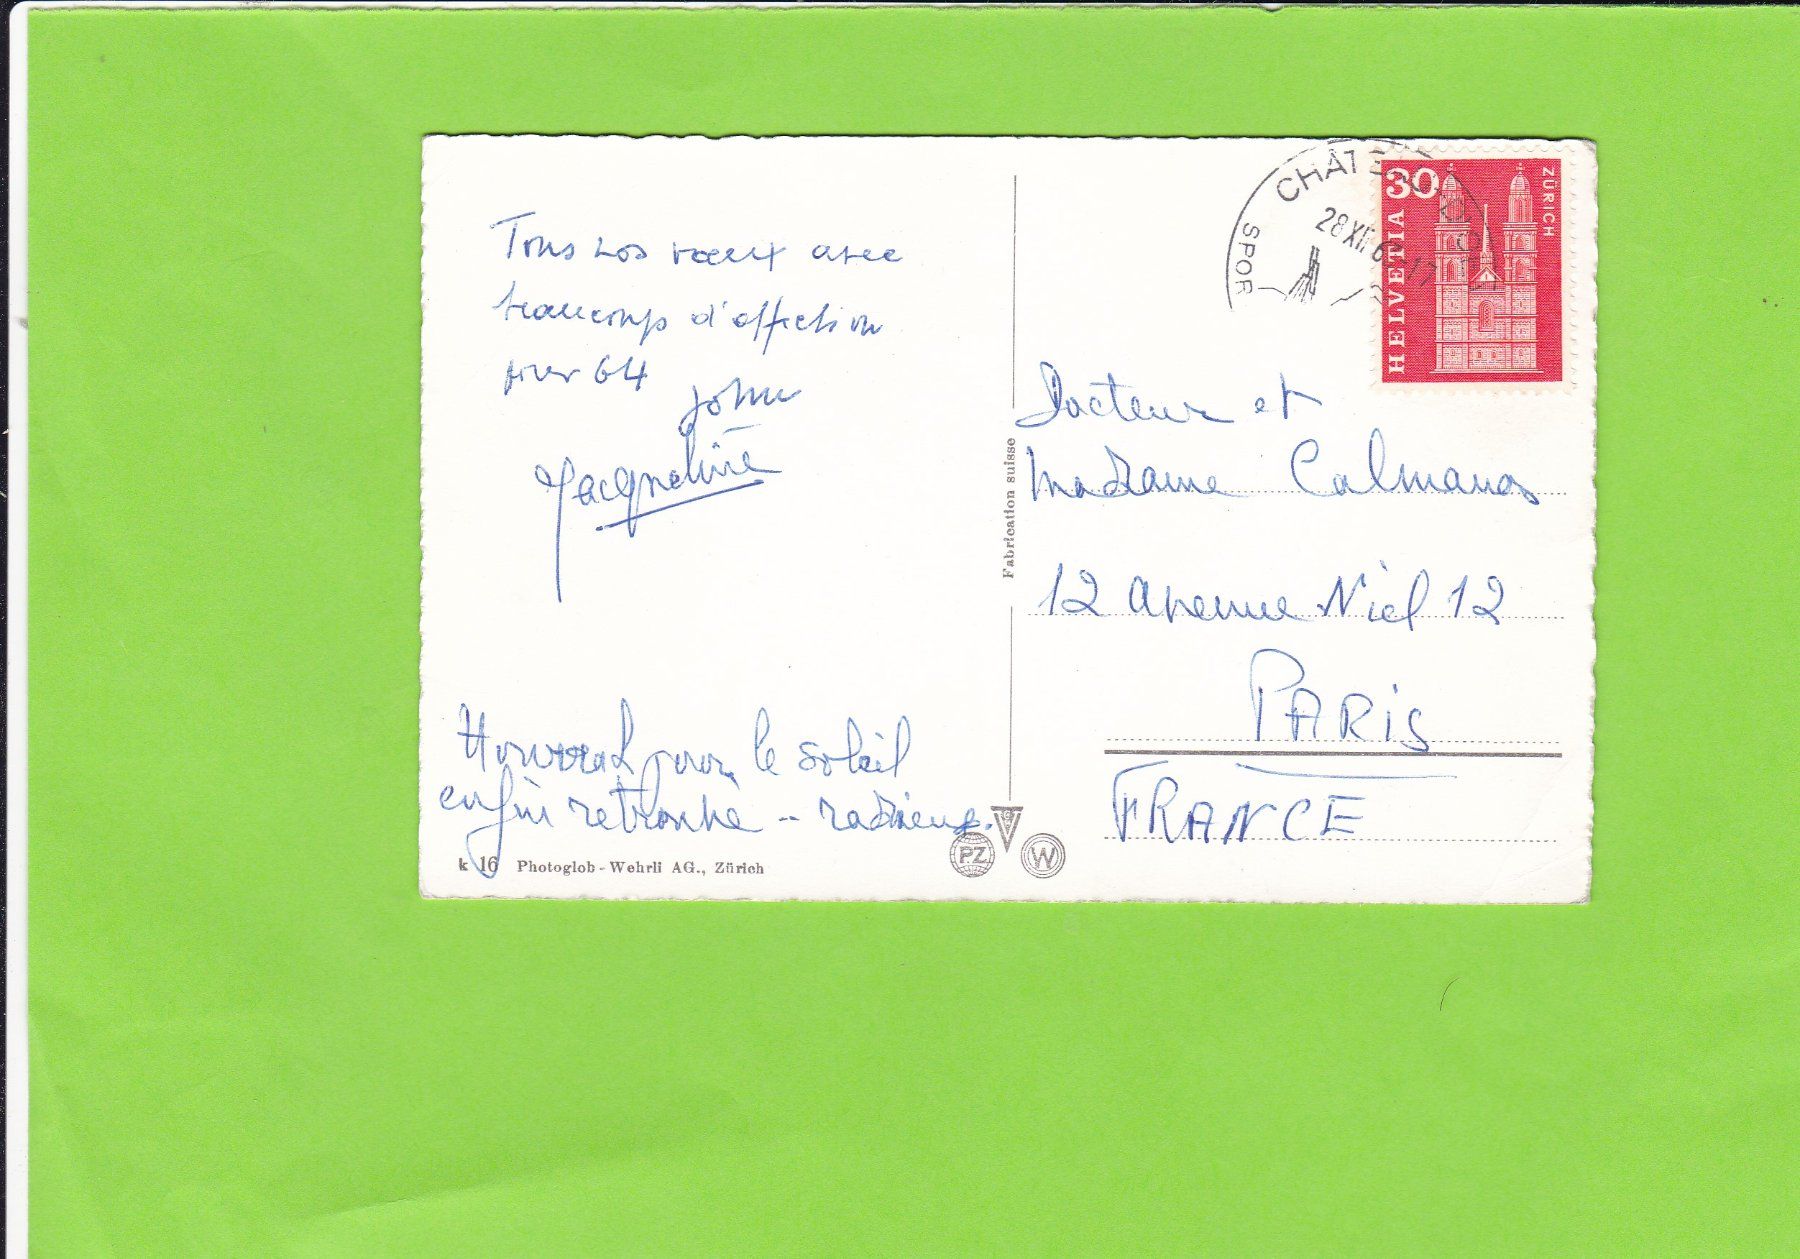 Tous nos vœux avec
beaucoup d'affection
pour 64
John
Jacqueline
Hourrah pour le soleil
enfin retrouvé -- radieux.
k 16 Photoglob-Wehrli AG., Zürich
Fabrication suisse
PZ
W
CHÂTEAU-D'OEX
28 XII 6 17
SPOR
30
HELVETIA
ZÜRICH
Docteur et
Madame Calmanos
12 Avenue Niel 12
PARIS
FRANCE